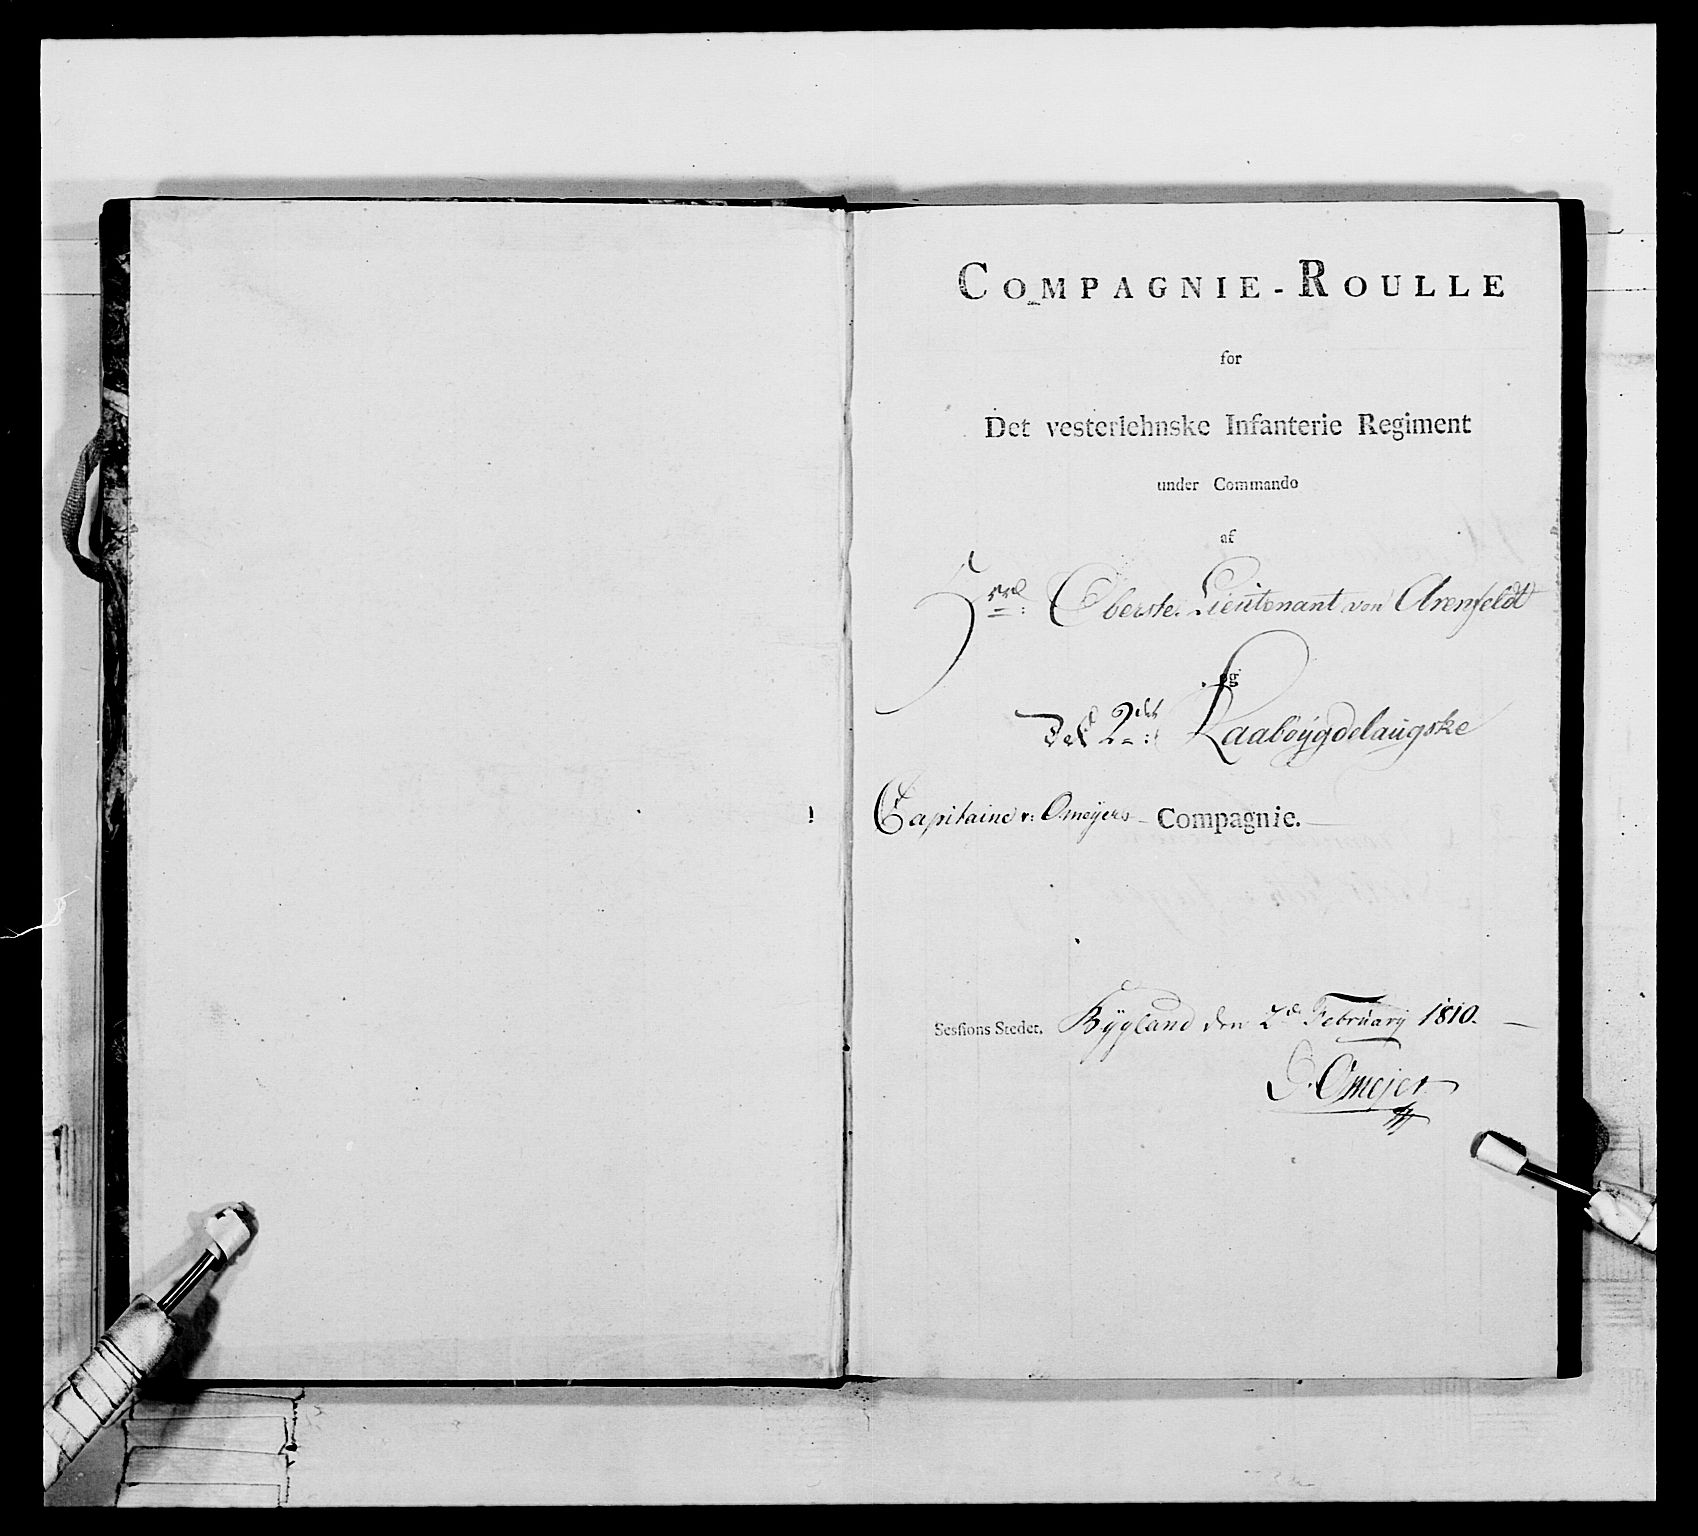 COMPAGNIE-ROULLE
for
Det vesterlehnske Infanterie Regiment
under Commando
af
Hrr: Oberste Lieutenant von Arenfeldt
og
Det 2det Raabøygdelaugske
Capitaine v: Omeyers Compagnie.
Sessions Stedet. Bygland den 2d February 1810.
Omejer